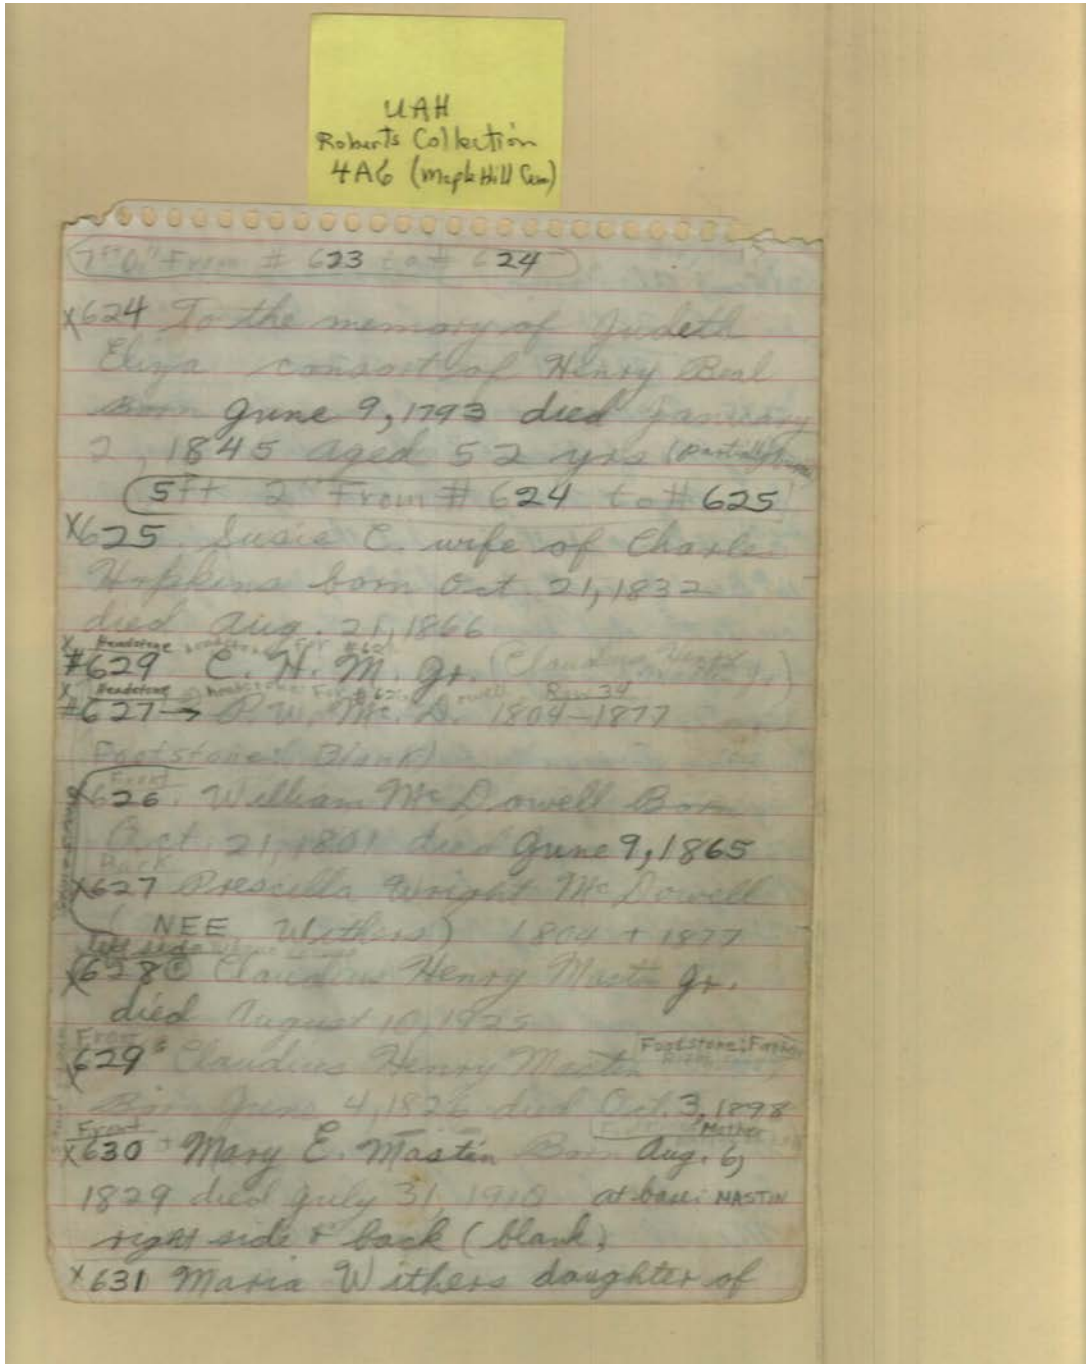 UAH
Roberts Collection
4A6 (Maple Hill Cem)
7ft 0" From # 623 to # 624
X624 To the memory of Judeth
Eliza consort of Henry Beal
Born June 9, 1793 died January
2, 1845 aged 52 yrs (partially
5ft 2" From # 624 to # 625
X625. Susie C. wife of Charles
Hopkins born Oct. 21, 1832
died Aug. 21, 1866
X Headstone
#629 C. H. M. Jr. (Claudius Henry
X Headstone Row 34
#627→ P. W. Mc. D. 1804-1877
(Footstone: Blank)
Front
X626. William McDowell Born
Oct. 21, 1801 died June 9, 1865
Back
X627 Prescilla Wright McDowell
(NEE Withers) 1804 + 1877
left side
X628 Claudius Henry Mastin Jr.
died August 10, 1925
Front Footstone: Father
X629 Claudius Henry Mastin
Born June 4, 1826 died Oct. 3, 1898
Front Mother
X630 Mary E. Mastin Born Aug. 6,
1829 died July 31, 1910 at base: MASTIN
right side & back (blank)
X631 Maria Withers daughter of